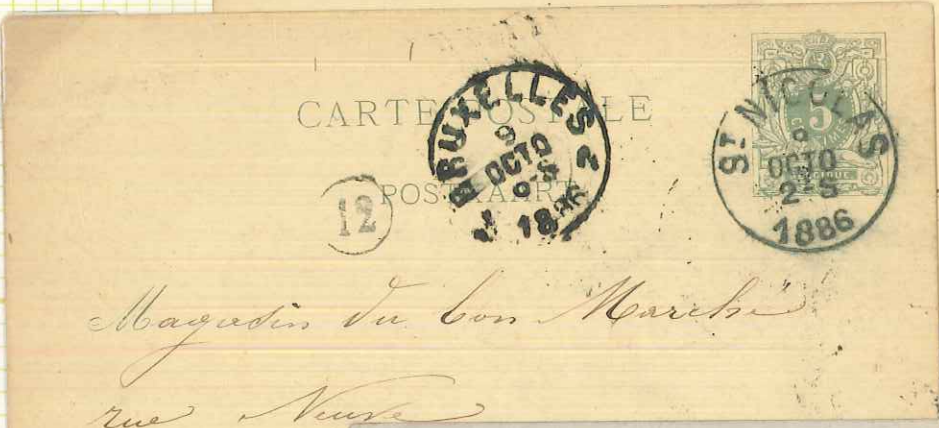 CARTE POSTALE
POSTKAART
BRUXELLES 2
9
OCTO
9-S
1886
ST NICOLAS
9
OCTO
2-S
1886
5
BELGIQUE
12
Magasin du bon Marché
rue Neuve